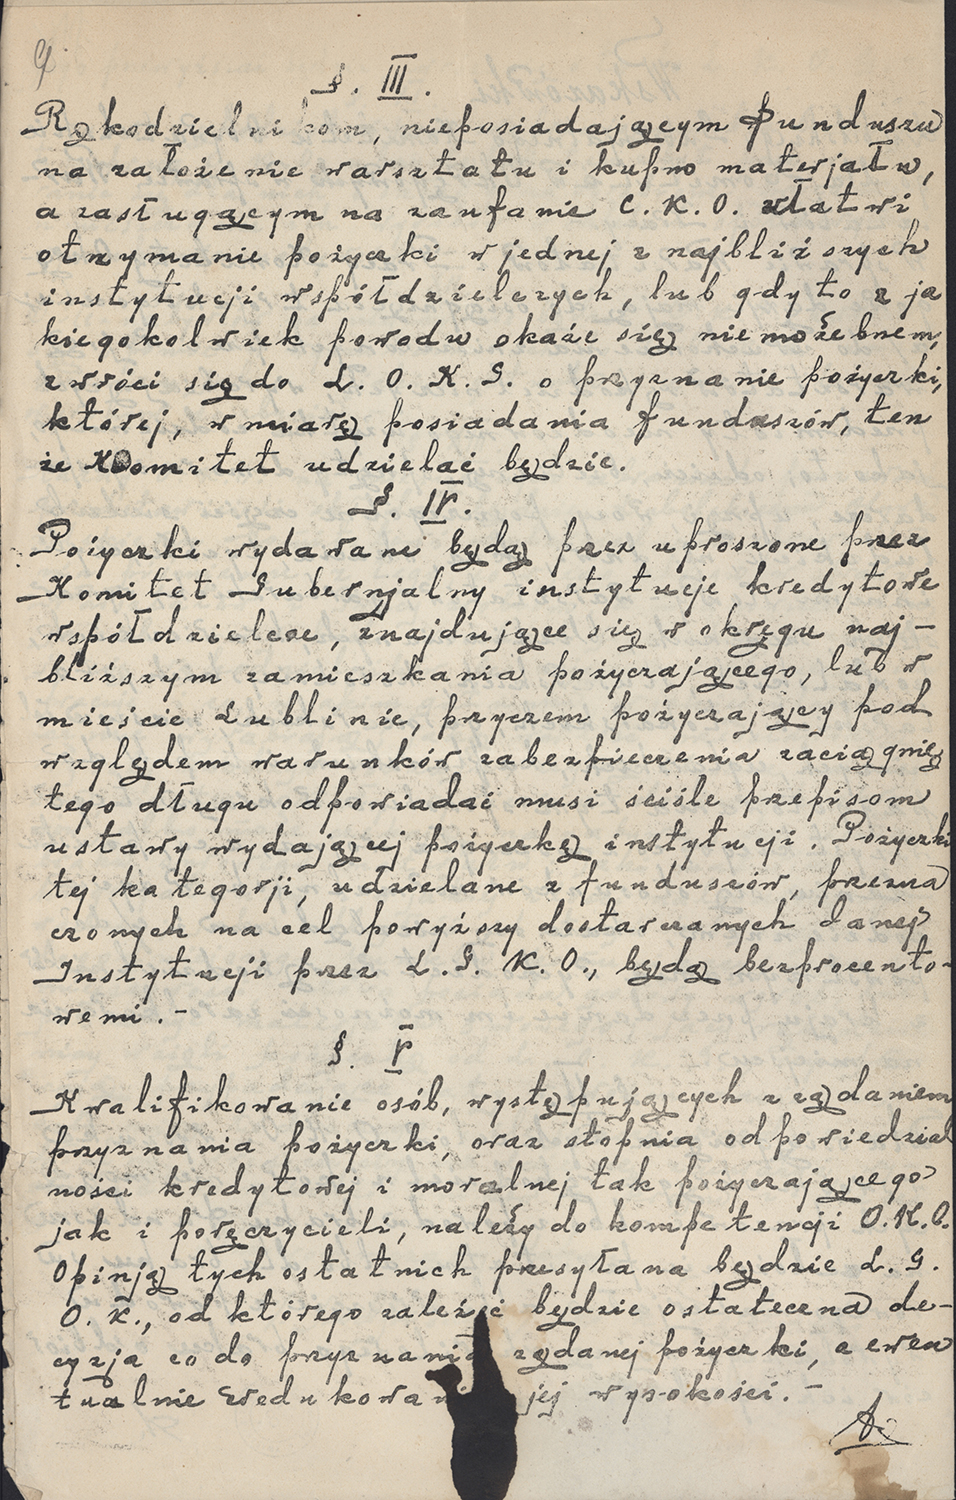 9
§. III.
Rękodzielnikom, nieposiadającym funduszu
na założenie warsztatu i kupno materjału,
a zasługącym na zaufanie C. K. O. ułatwi
otrzymanie pożyczki w jednej z najbliższych
instytucji współdzielczych, lub gdy to z ja
kiegokolwiek powodu okaże się niemożebnem,
zwróci się do L. O. K. G. o przyznanie pożyczki,
której, w miarę posiadania funduszów, ten
że Komitet udzielać będzie.
§. IV.
Pożyczki wydawane będą przez uproszone przez
Komitet Gubernjalny instytucje kredytowe
współdzielcze, znajdujące się w okręgu naj-
bliższym zamieszkania pożyczającego, lub w
mieście Lublinie, przyczem pożyczający pod
względem warunków zabezpieczenia zaciągnię
tego długu odpowiadać musi ściśle przepisom
ustawy wydającej pożyczkę instytucji. Pożyczki
tej kategorji, udzielane z funduszów, przezna
czonych na cel powyższy dostarczanych danej
Instytucji przez L. G. K. O., będą bezprocento-
wemi.-
§. V
Kwalifikowanie osób, występujących z żądaniem
przyznania pożyczki, oraz stopnia odpowiedzial
ności kredytowej i moralnej tak pożyczającego
jak i poręczycieli, należy do kompetencji O. K. O.
Opinją tych ostatnich przesyłana będzie L. G.
O. K., od którego zależeć będzie ostateczna de-
cyzja co do przyznania żądanej pożyczki, a ewen
tualnie zredukowani jej wysokości.-